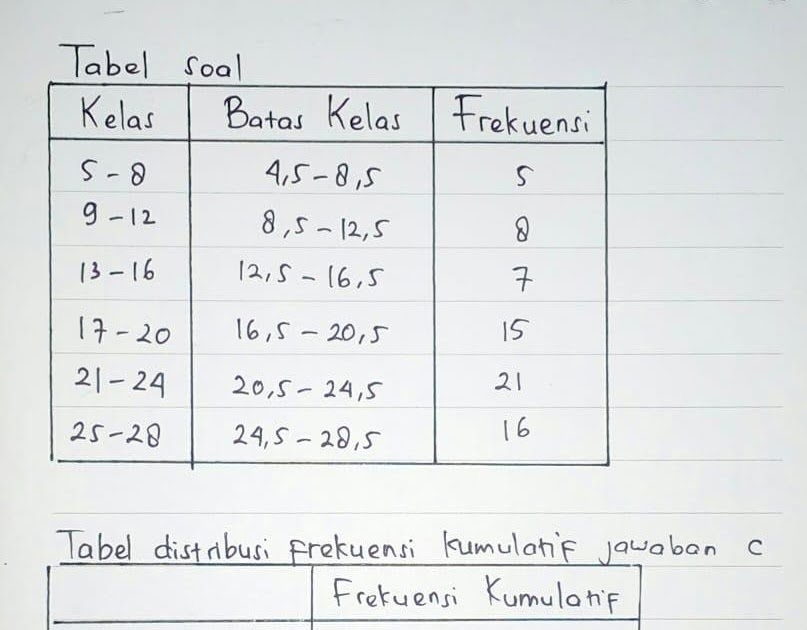 Tabel soal
Kelas Batas Kelas Frekuensi
5-8 4,5-8,5 5
9-12 8,5-12,5 8
13-16 12,5-16,5 7
17-20 16,5-20,5 15
21-24 20,5-24,5 21
25-28 24,5-28,5 16
Tabel distribusi frekuensi kumulatif jawaban c
Frekuensi Kumulatif